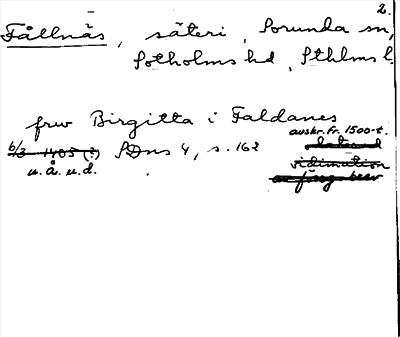 2.
Fållnäs, säteri, Sorunda sn,
Sotholms hd, Sthlms l.
frw Birgitta i Faldanes
avskr. fr. 1500-t.
6/3 1405 (?) SDns 4, s. 162
u. å. u. d.
vidimation